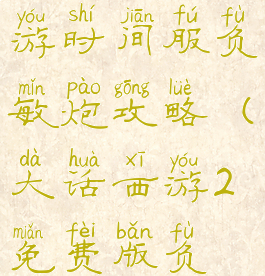 yóu shí jiān fú fù
游时间服负
mǐn pào gōng lüè
敏炮攻略（
dà huà xī yóu
大话西游2
miǎn fèi bǎn fù
免费版负